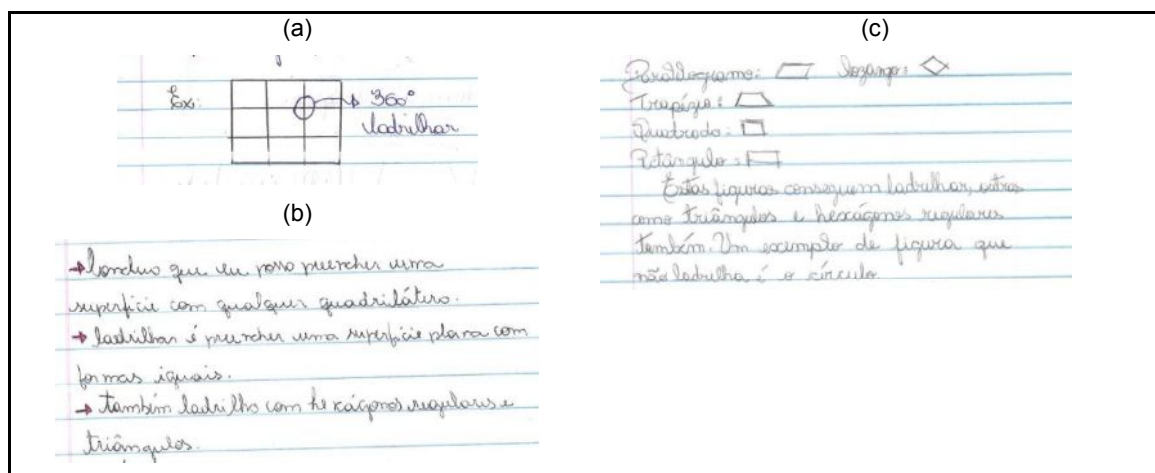 (a)
Ex:
360°
ladrilhar
(b)
→ Concluo que eu posso preencher uma
superfície com qualquer quadrilátero.
→ ladrilhar é preencher uma superfície plana com
formas iguais.
→ também ladrilho com hexágonos regulares e
triângulos.
(c)
Paralelogramo: lozango:
Trapézio:
Quadrado:
Retângulo:
Estas figuras conseguem ladrilhar, outras
como triângulos e hexágonos regulares
também. Um exemplo de figura que
não ladrilha é o círculo